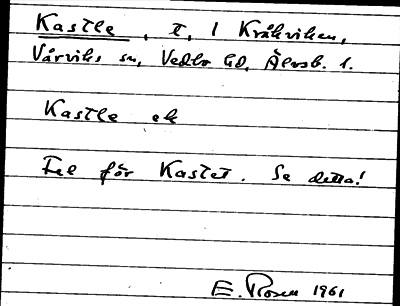 Kastle, t, 1 Kråkviken,
Vårviks sn, Vedbo hd, Älvsb. l.
Kastle ek
Fel för Kastet. Se detta!
E. Rosen 1961